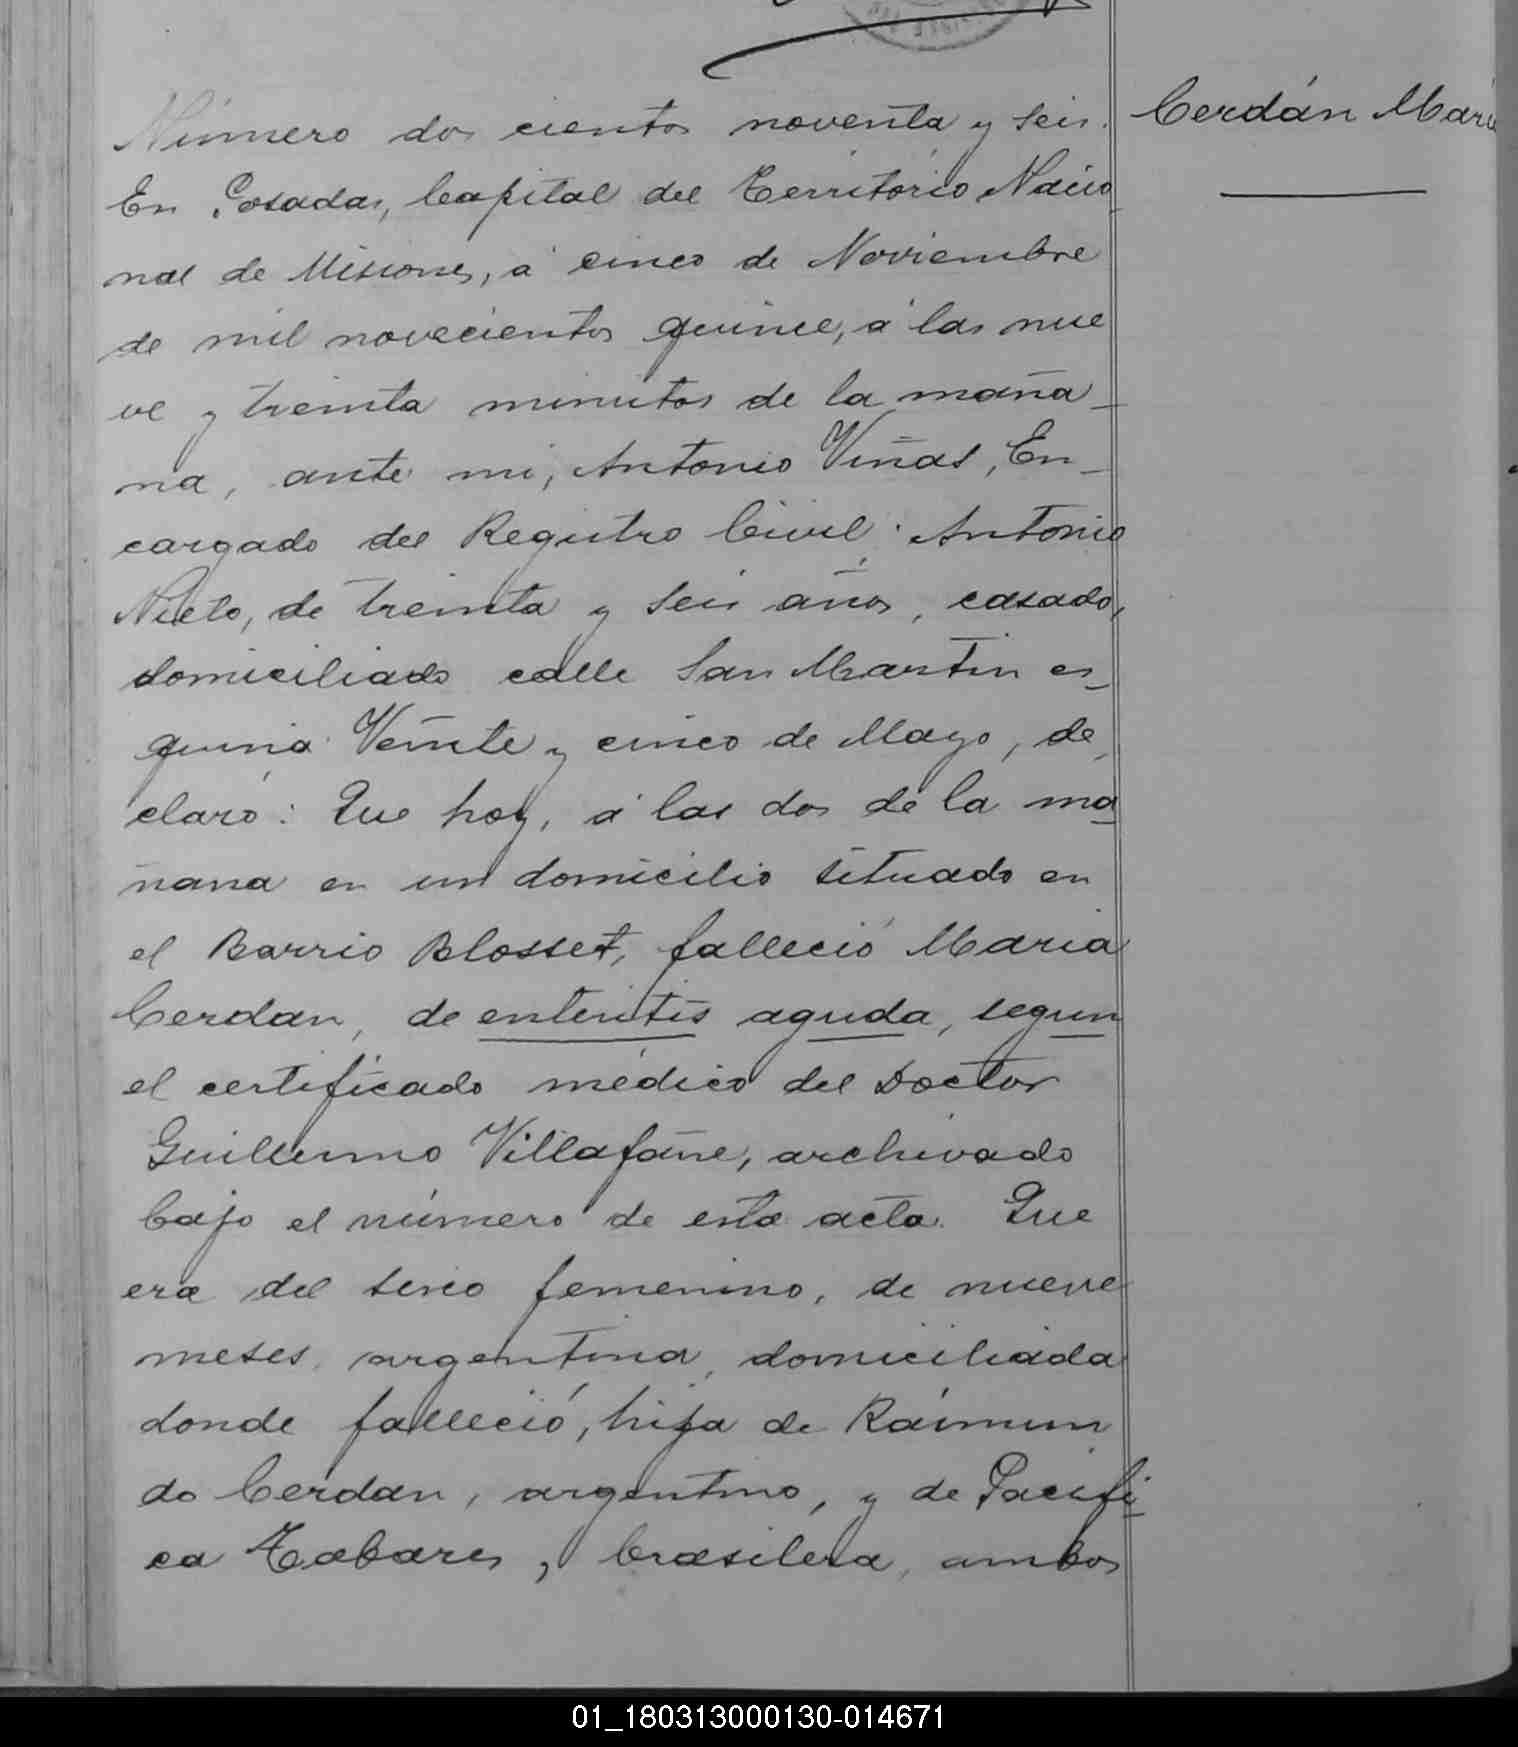 Número dos cientos noventa y seis.
Cerdán Maria
En Posadas, Capital del Territorio Nacio_
nal de Misiones, á cinco de Noviembre
de mil novecientos quince, á las nue
ve y treinta minutos de la maña_
na, ante mi, Antonio Viñas, En_
cargado del Registro Civil: Antonio
Nieto, de treinta y seis años, casado,
domiciliado calle San Martin es_
quina Veinte y cinco de Mayo, de_
claró: Que hoy, á las dos de la ma
ñana en un domicilio situado en
el Barrio Blosset, falleció Maria
Cerdan, de enteritis aguda, segun
el certificado médico del Doctor
Guillermo Villafañe, archivado
bajo el número de esta acta. Que
era del sexo femenino, de nueve
meses, argentina, domiciliada
donde falleció, hija de Raimun
do Cerdan, argentino, y de Pacifi_
ca Tabares, brasilera, ambos
01_180313000130-014671